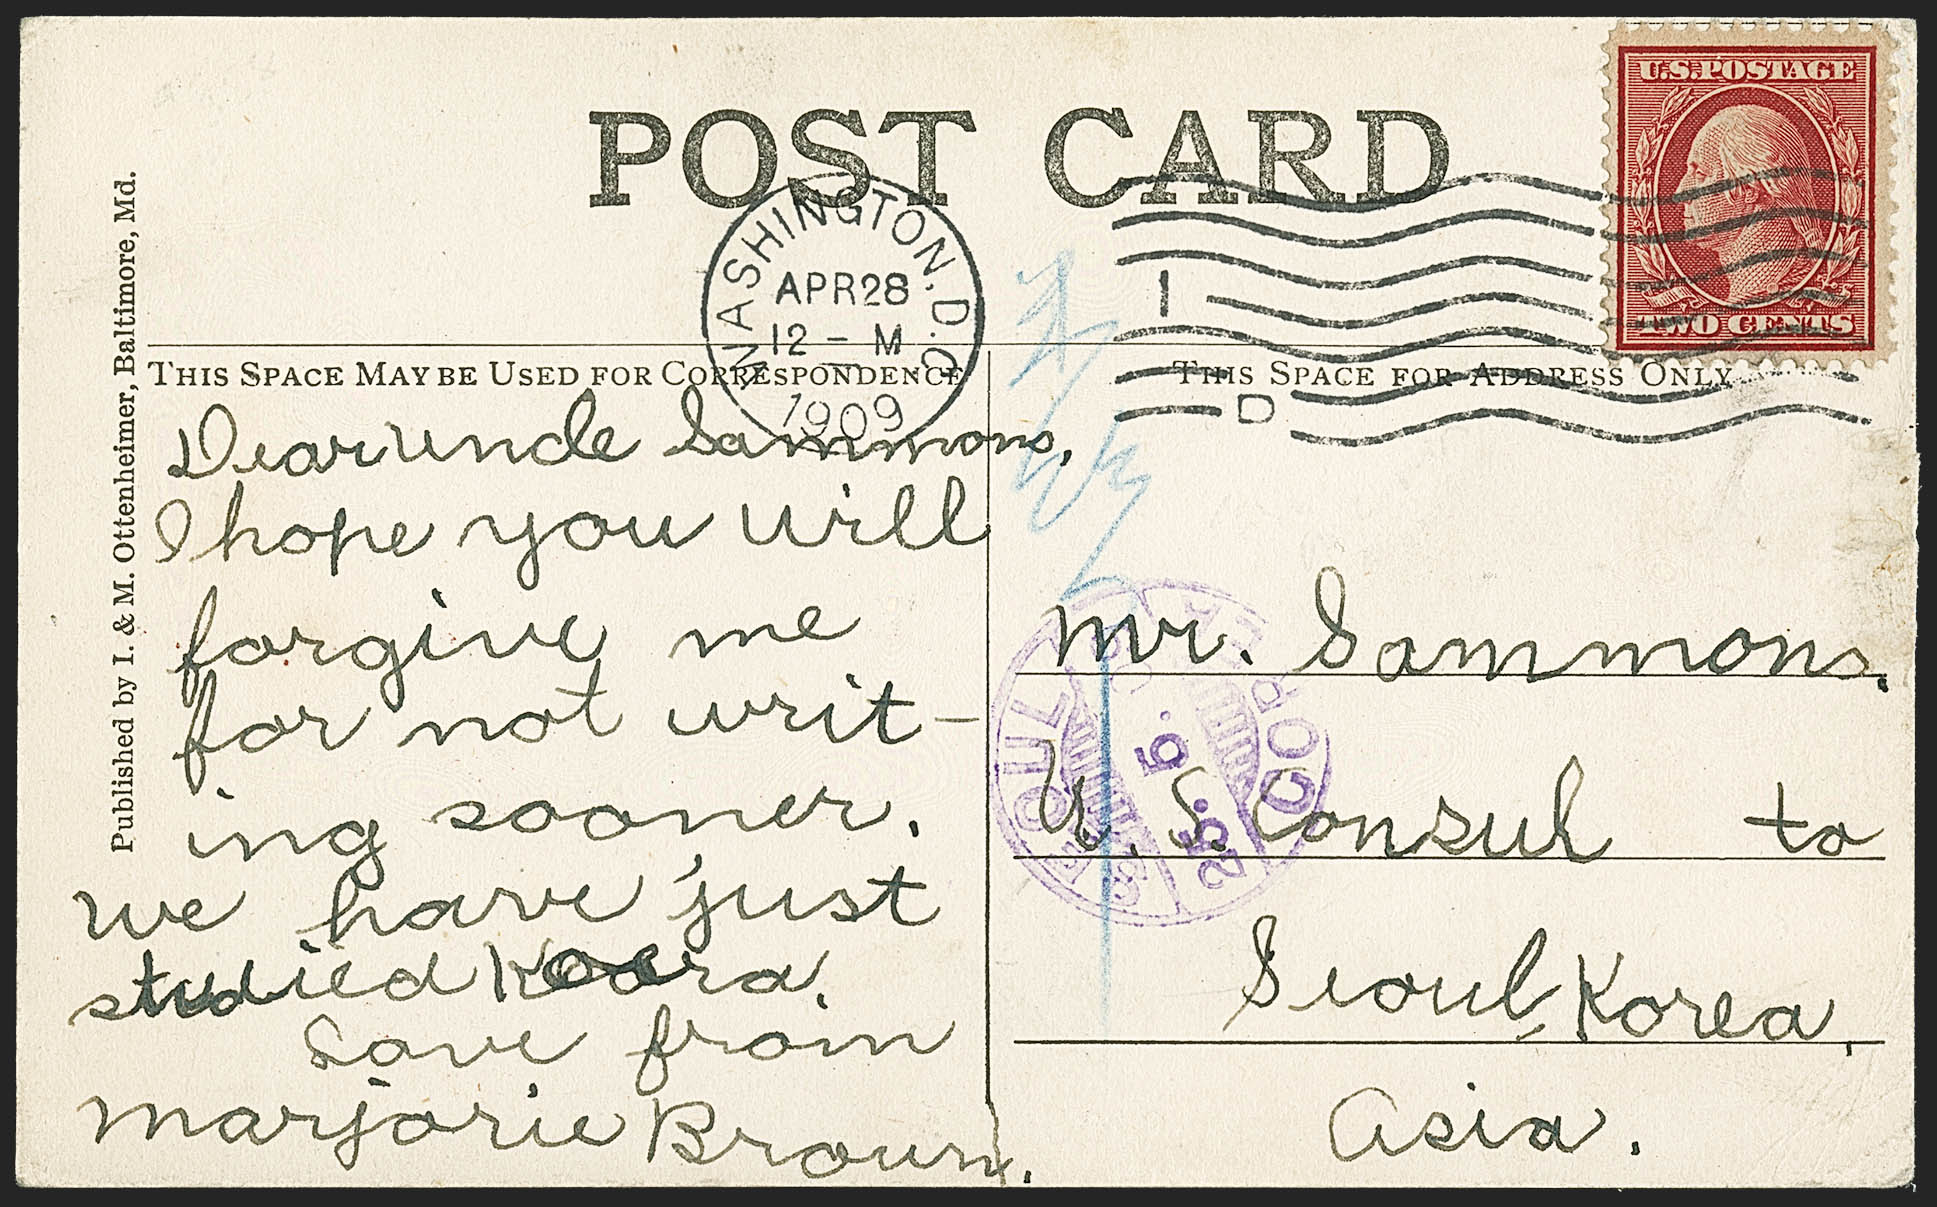 POST CARD
U.S. POSTAGE
TWO CENTS
WASHINGTON. D.C.
APR 28
12 - M
1909
1
D
Published by I. & M. Ottenheimer, Baltimore, Md.
THIS SPACE MAY BE USED FOR CORRESPONDENCE
THIS SPACE FOR ADDRESS ONLY
Dear uncle Sammons,
I hope you will
forgive me
for not writ-
ing sooner.
we have just
studied Korea.
Love from
Marjorie Brown.
Mr. Sammons.
U. S. Consul to
Seoul, Korea,
Asia.
SEOUL
COR
25. 5.